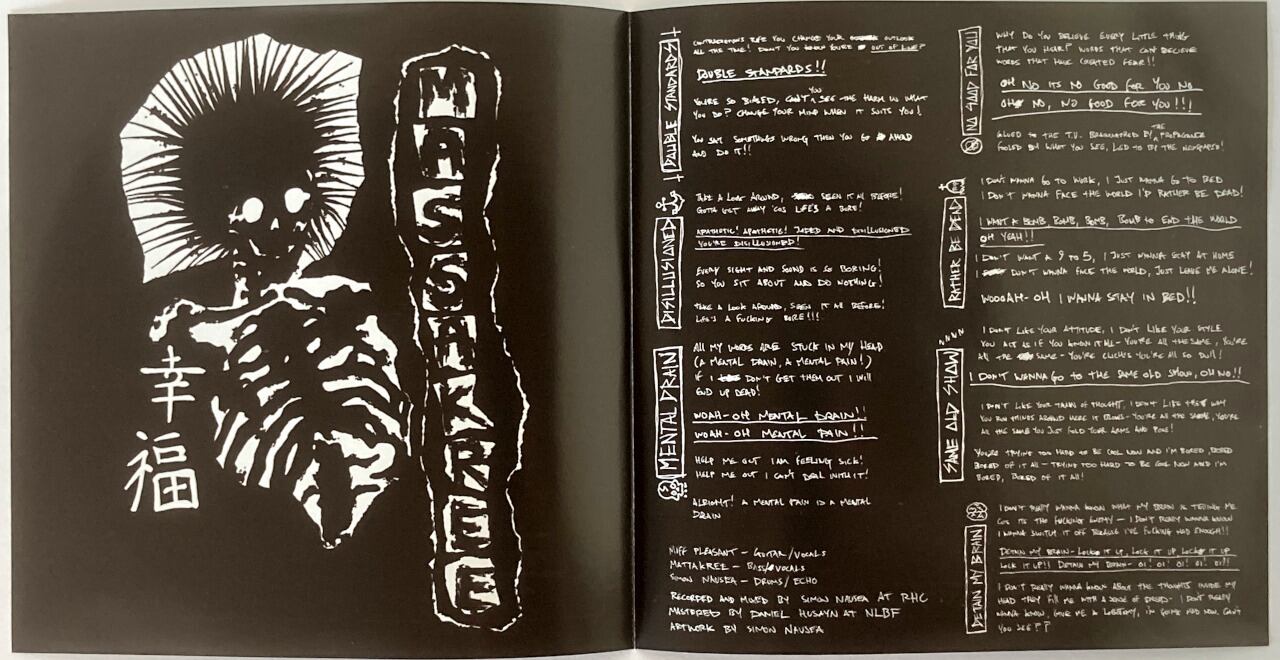 MASSAKREE
幸福
DOUBLE STANDARDS
CONTRADICTIONS RIFE YOU CHANGE YOUR OUTLOOK
ALL THE TIME! DON'T YOU KNOW YOU'RE OUT OF LINE?
DOUBLE STANDARDS!!
YOU
YOURE SO BIASED, CAN'T SEE THE HARM IN WHAT
YOU DO? CHANGE YOUR MIND WHEN IT SUITS YOU!
YOU SAY SOMETHINGS WRONG THEN YOU GO AHEAD
AND DO IT!!
DISILLUSIONED
TAKE A LOOK AROUND, SEEN IT ALL BEFORE!
GOTTA GET AWAY 'COS LIFE'S A BORE!
APATHETIC! APATHETIC! JADED AND DISILLUSIONED
YOU'RE DISILLUSIONED!
EVERY SIGHT AND SOUND IS SO BORING!
SO YOU SIT ABOUT AND DO NOTHING!
TAKE A LOOK AROUND, SEEN IT ALL BEFORE!
LIFE'S A FUCKING BORE!!!
MENTAL DRAIN
ALL MY WORDS ARE STUCK IN MY HEAD
(A MENTAL DRAIN, A MENTAL PAIN!)
IF I DON'T GET THEM OUT I WILL
END UP DEAD!
WOAH-OH MENTAL DRAIN!!
WOAH-OH MENTAL PAIN!!
HELP ME OUT I AM FEELING SICK!
HELP ME OUT I CAN'T DEAL WITH IT!
ALRIGHT! A MENTAL PAIN IS A MENTAL
DRAIN
NIFF PLEASANT - GUITAR/VOCALS
MATTAKREE - BASS/VOCALS
SIMON NAUSEA - DRUMS/ECHO
RECORDED AND MIXED BY SIMON NAUSEA AT RHC
MASTERED BY DANIEL HUSAYN AT NLBF
ARTWORK BY SIMON NAUSEA
NO GOOD FOR YOU
WHY DO YOU BELIEVE EVERY LITTLE THING
THAT YOU HEAR? WORDS THAT CAN DECIEVE
WORDS THAT HAVE CREATED FEAR!!
OH NO ITS NO GOOD FOR YOU NO
OH NO, NO GOOD FOR YOU!!!
THE
GLUED TO THE T.V. BRAINWASHED BY PROPAGANDA
FOOLED BY WHAT YOU SEE, LED TO BY THE NEWSPAPER!
RATHER BE DEAD
I DON'T WANNA GO TO WORK, I JUST WANNA GO TO BED
I DON'T WANNA FACE THE WORLD I'D RATHER BE DEAD!
I WANT A BOMB, BOMB, BOMB, BOMB TO END THE WORLD
OH YEAH!!
I DON'T WANT A 9 TO 5, I JUST WANNA STAY AT HOME
I DON'T WANNA FACE THE WORLD, JUST LEAVE ME ALONE!
WOOOAH-OH I WANNA STAY IN BED!!
SAME OLD SHOW
I DON'T LIKE YOUR ATTITUDE, I DON'T LIKE YOUR STYLE
YOU ACT AS IF YOU KNOW IT ALL - YOU'RE ALL THE SAME, YOU'RE
ALL THE SAME - YOU'RE CLICHES YOU'RE ALL SO DULL!
I DON'T WANNA GO TO THE SAME OLD SHOW, OH NO!!
I DON'T LIKE YOUR TRAIN OF THOUGHT, I DIDN'T LIKE THE WAY
YOU RUN THINGS AROUND HERE IT BLOWS - YOU'RE ALL THE SAME, YOU'RE
ALL THE SAME YOU JUST FOLD YOUR ARMS AND POSE!
YOU'RE TRYING TOO HARD TO BE COOL NOW AND I'M BORED, BORED
BORED OF IT ALL - TRYING TOO HARD TO BE COOL NOW AND I'M
BORED, BORED OF IT ALL!
DETAIN MY BRAIN
I DON'T REALLY WANNA KNOW WHAT MY BRAIN IS TELLING ME
COS ITS THE FUCKING ENEMY - I DON'T REALLY WANNA KNOW
I WANNA SWITCH IT OFF BECAUSE I'VE FUCKING HAD ENOUGH!!
DETAIN MY BRAIN - LOCK IT UP, LOCK IT UP, LOCK IT UP
LOCK IT UP!! DETAIN MY BRAIN - OI! OI! OI! OI! OI!!
I DON'T REALLY WANNA KNOW ABOUT THE THOUGHTS INSIDE MY
HEAD THEY FILL ME WITH A SENSE OF DREAD - I DON'T REALLY
WANNA KNOW, GIVE ME A LOBOTOMY, I'M GOING MAD NOW CAN'T
YOU SEE??